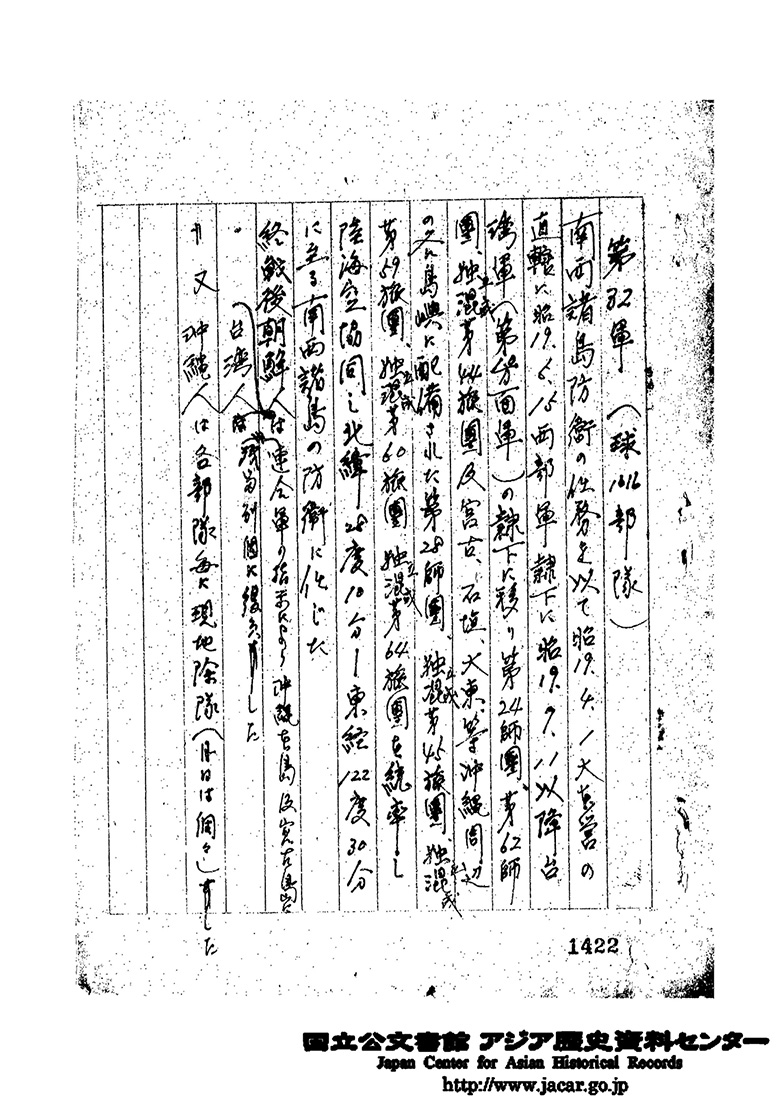 第32軍（球1616部隊）
南西諸島防衛の任務を以て昭19.4.1大本営の
直轄に昭19.5.15西部軍隷下に昭19.7.11以降台
湾軍（第10方面軍）の隷下に移り第24師團、第62師
團、独立混成第44旅團及宮古、石垣、大東等沖縄周辺
の各島嶼に配備された第28師團、独立混成第45旅團、独立混成
第59旅團、独立混成第60旅團、独立混成第64旅團を統率し
陸海空協同し北緯28度10分－東経122度30分
に至る南西諸島の防衛に任じた
終戦後朝鮮人は連合軍の指示により沖縄本島及宮古島
台湾人は残留別個に復員しました
又沖縄人は各部隊毎に現地除隊（月日は個々）しました
1422
国立公文書館 アジア歴史資料センター
Japan Center for Asian Historical Records
http://www.jacar.go.jp